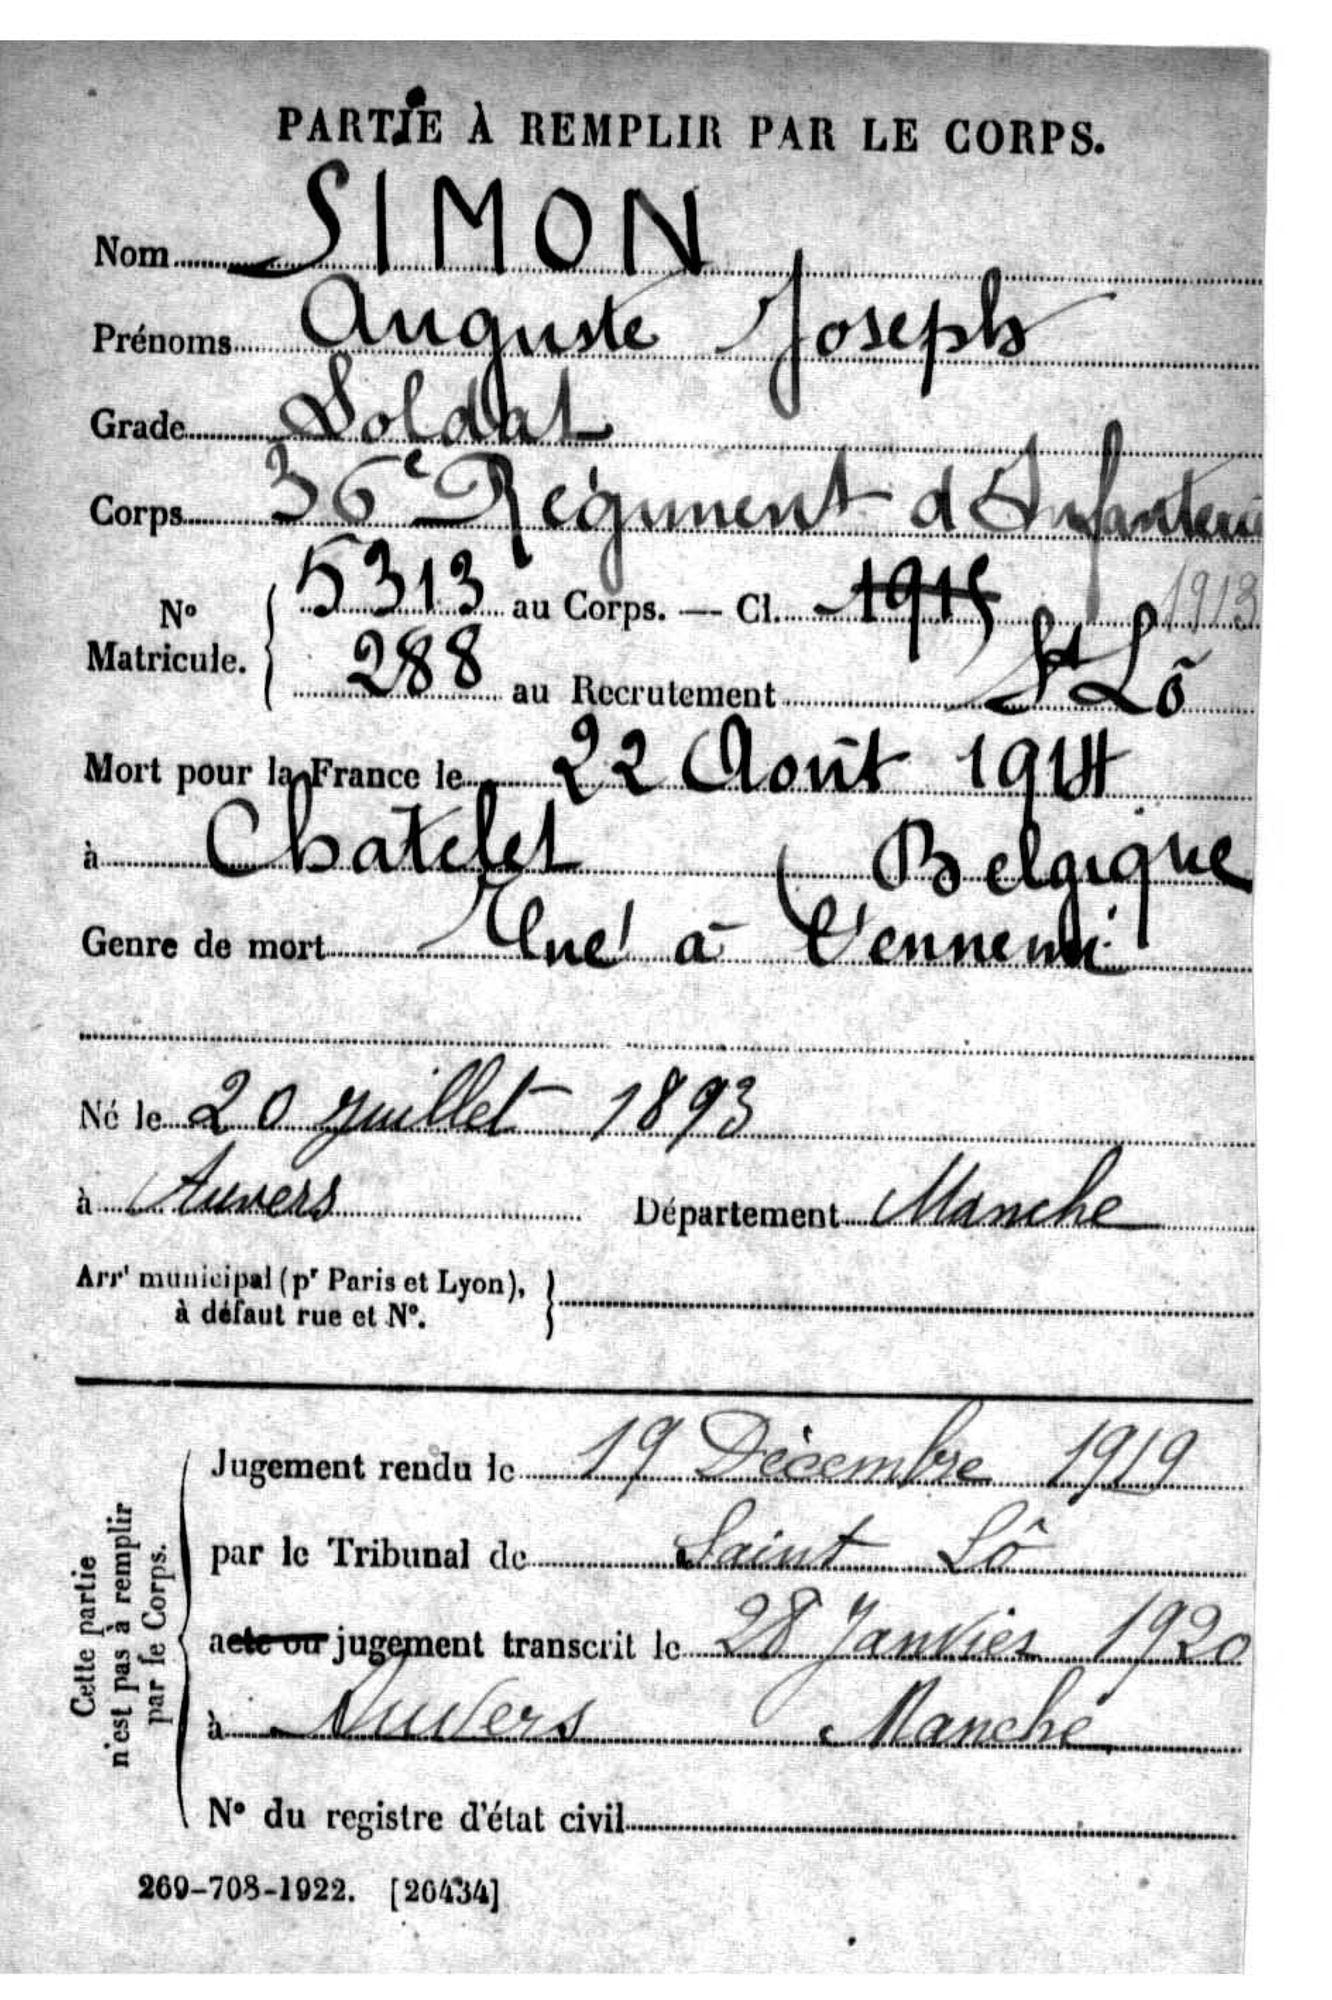 PARTIE À REMPLIR PAR LE CORPS.
Nom SIMON
Prénoms Auguste Joseph
Grade Soldat
Corps 36e Régiment d'Infanterie
No Matricule. { 5313 au Corps. — Cl. 1915 1913
288 au Recrutement St Lô
Mort pour la France le 22 Août 1914
à Chatelet (Belgique
Genre de mort Tué à l'ennemi
Né le 20 juillet 1893
à Auvers Département Manche
Arrt municipal (pr Paris et Lyon), à défaut rue et No. }
Cette partie n'est pas à remplir par le Corps.
Jugement rendu le 19 Décembre 1919
par le Tribunal de Saint Lô
acte ou jugement transcrit le 28 Janvier 1920
à Auvers Manche
No du registre d'état civil
269-708-1922. [26434]